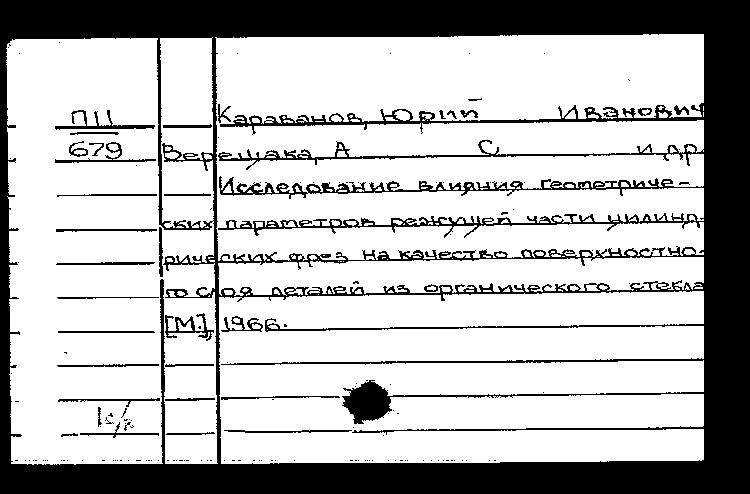 П11 Караванов, Юрий Иванович
679 Верещака, А С, и др.
Исследование влияния геометриче-
ских параметров режущей части цилинд-
рических фрез на качество поверхностно-
го слоя деталей из органического стекла
[М.], 1966.